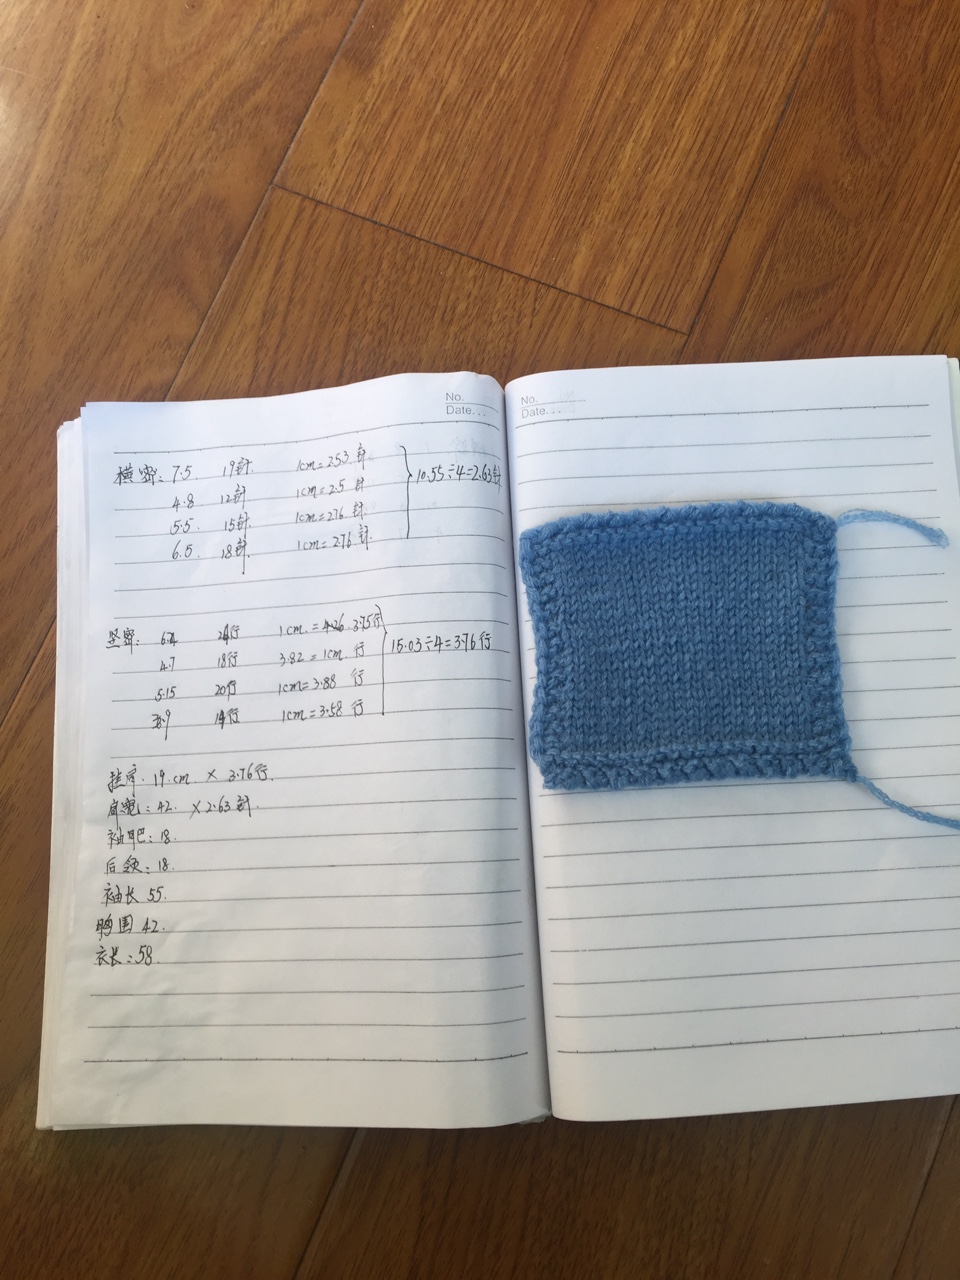 No.
Date...
横密: 7.5 19针 1cm=2.53针
4.8 12针 1cm=2.5 针
5.5. 15针 1cm=2.76 针.
6.5. 18针. 1cm=2.76 针.
10.55÷4=2.63针
坚密: 6.4 24行 1cm.= 3.75行
4.7 18行 3.82=1cm. 行
5.15 20行 1cm=3.88 行
3.9 14行 1cm=3.58 行
15.03÷4=3.76行
挂肩. 19.cm × 3.76行.
肩宽: 42. ×2.63针.
袖吧: 18.
后领: 18.
袖长 55.
胸围 42.
衣长: 58.
No.
Date...